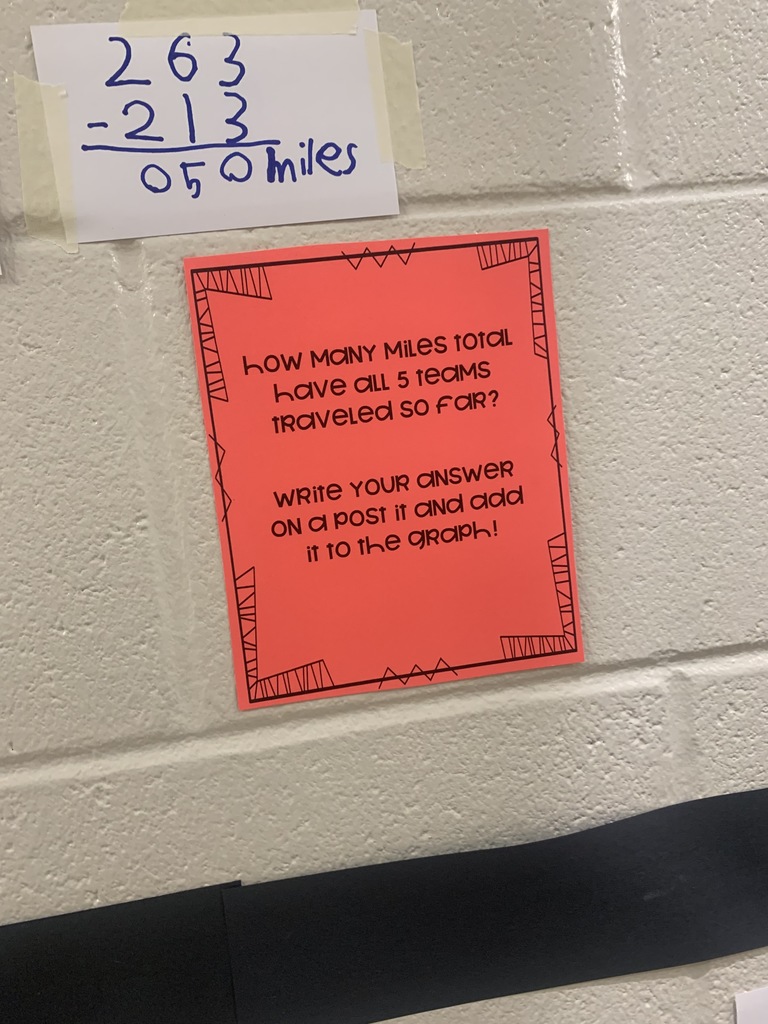 263
-213
050 miles
HOW MANY MILES TOTAL
HAVE ALL 5 TEAMS
TRAVELED SO FAR?
WRITE YOUR ANSWER
ON A POST IT AND ADD
IT TO THE GRAPH!